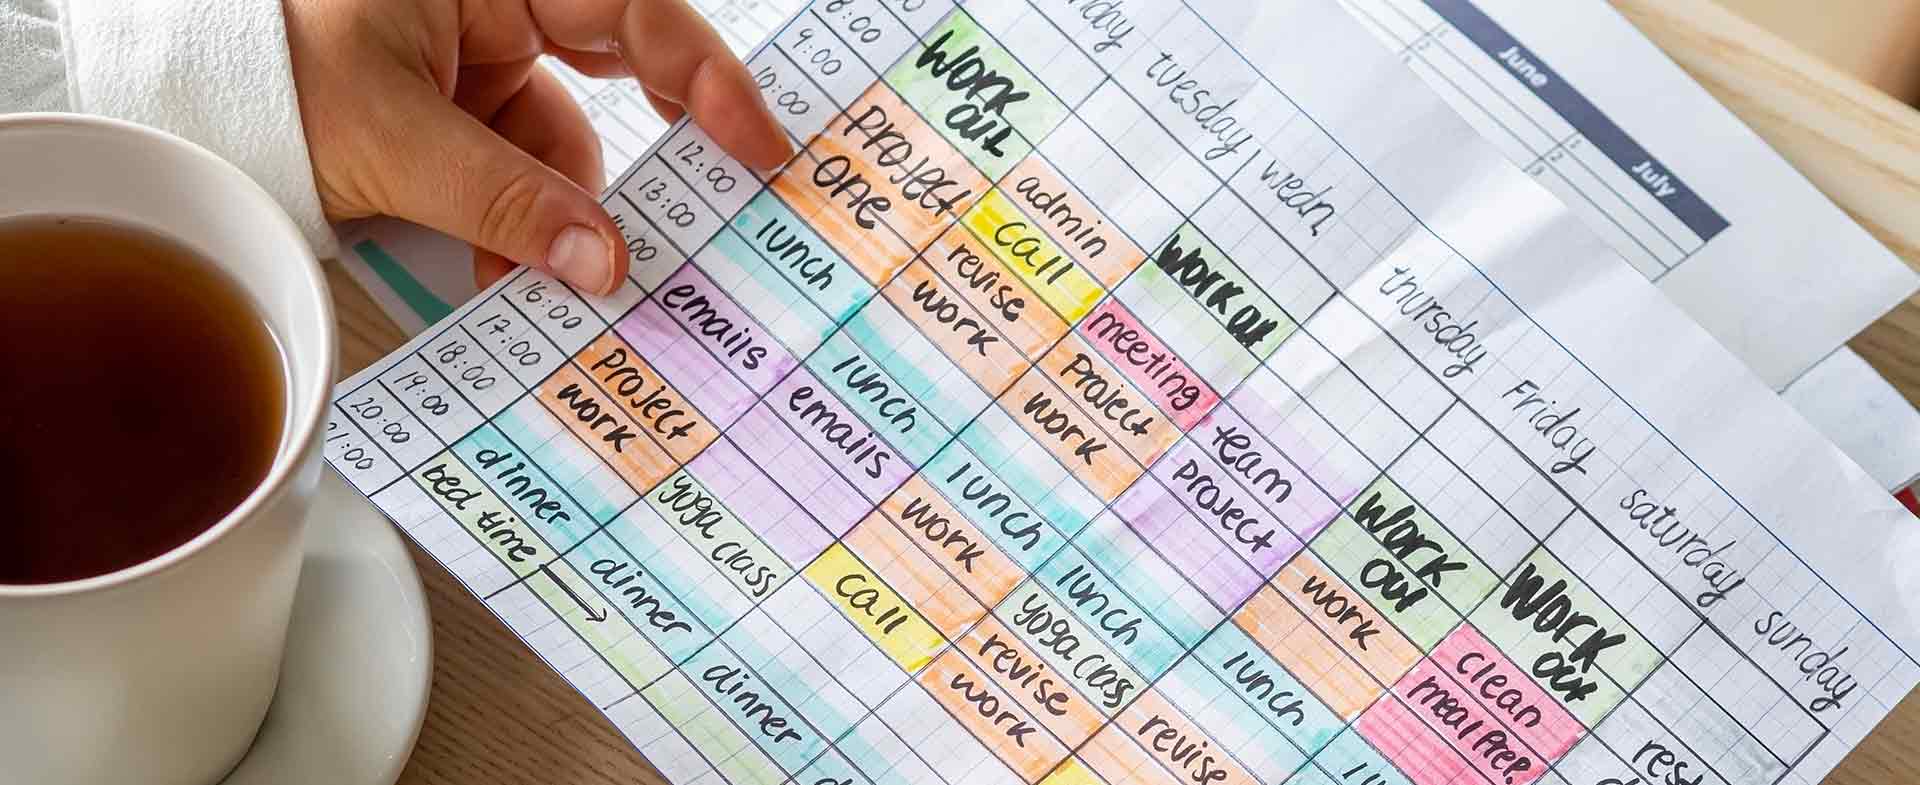 June
July
tuesday
wedn
thursday
Friday
saturday
sunday
8:00
9:00
10:00
12:00
13:00
16:00
17:00
18:00
19:00
20:00
21:00
work
out
Project
one
lunch
emails
Project
work
dinner
bed time
admin
call
revise
work
lunch
emails
yoga class
dinner
work out
meeting
Project
work
lunch
work
call
dinner
team
project
lunch
yoga class
revise
work
work
out
work
lunch
revise
work
out
clean
meal prep.
rest